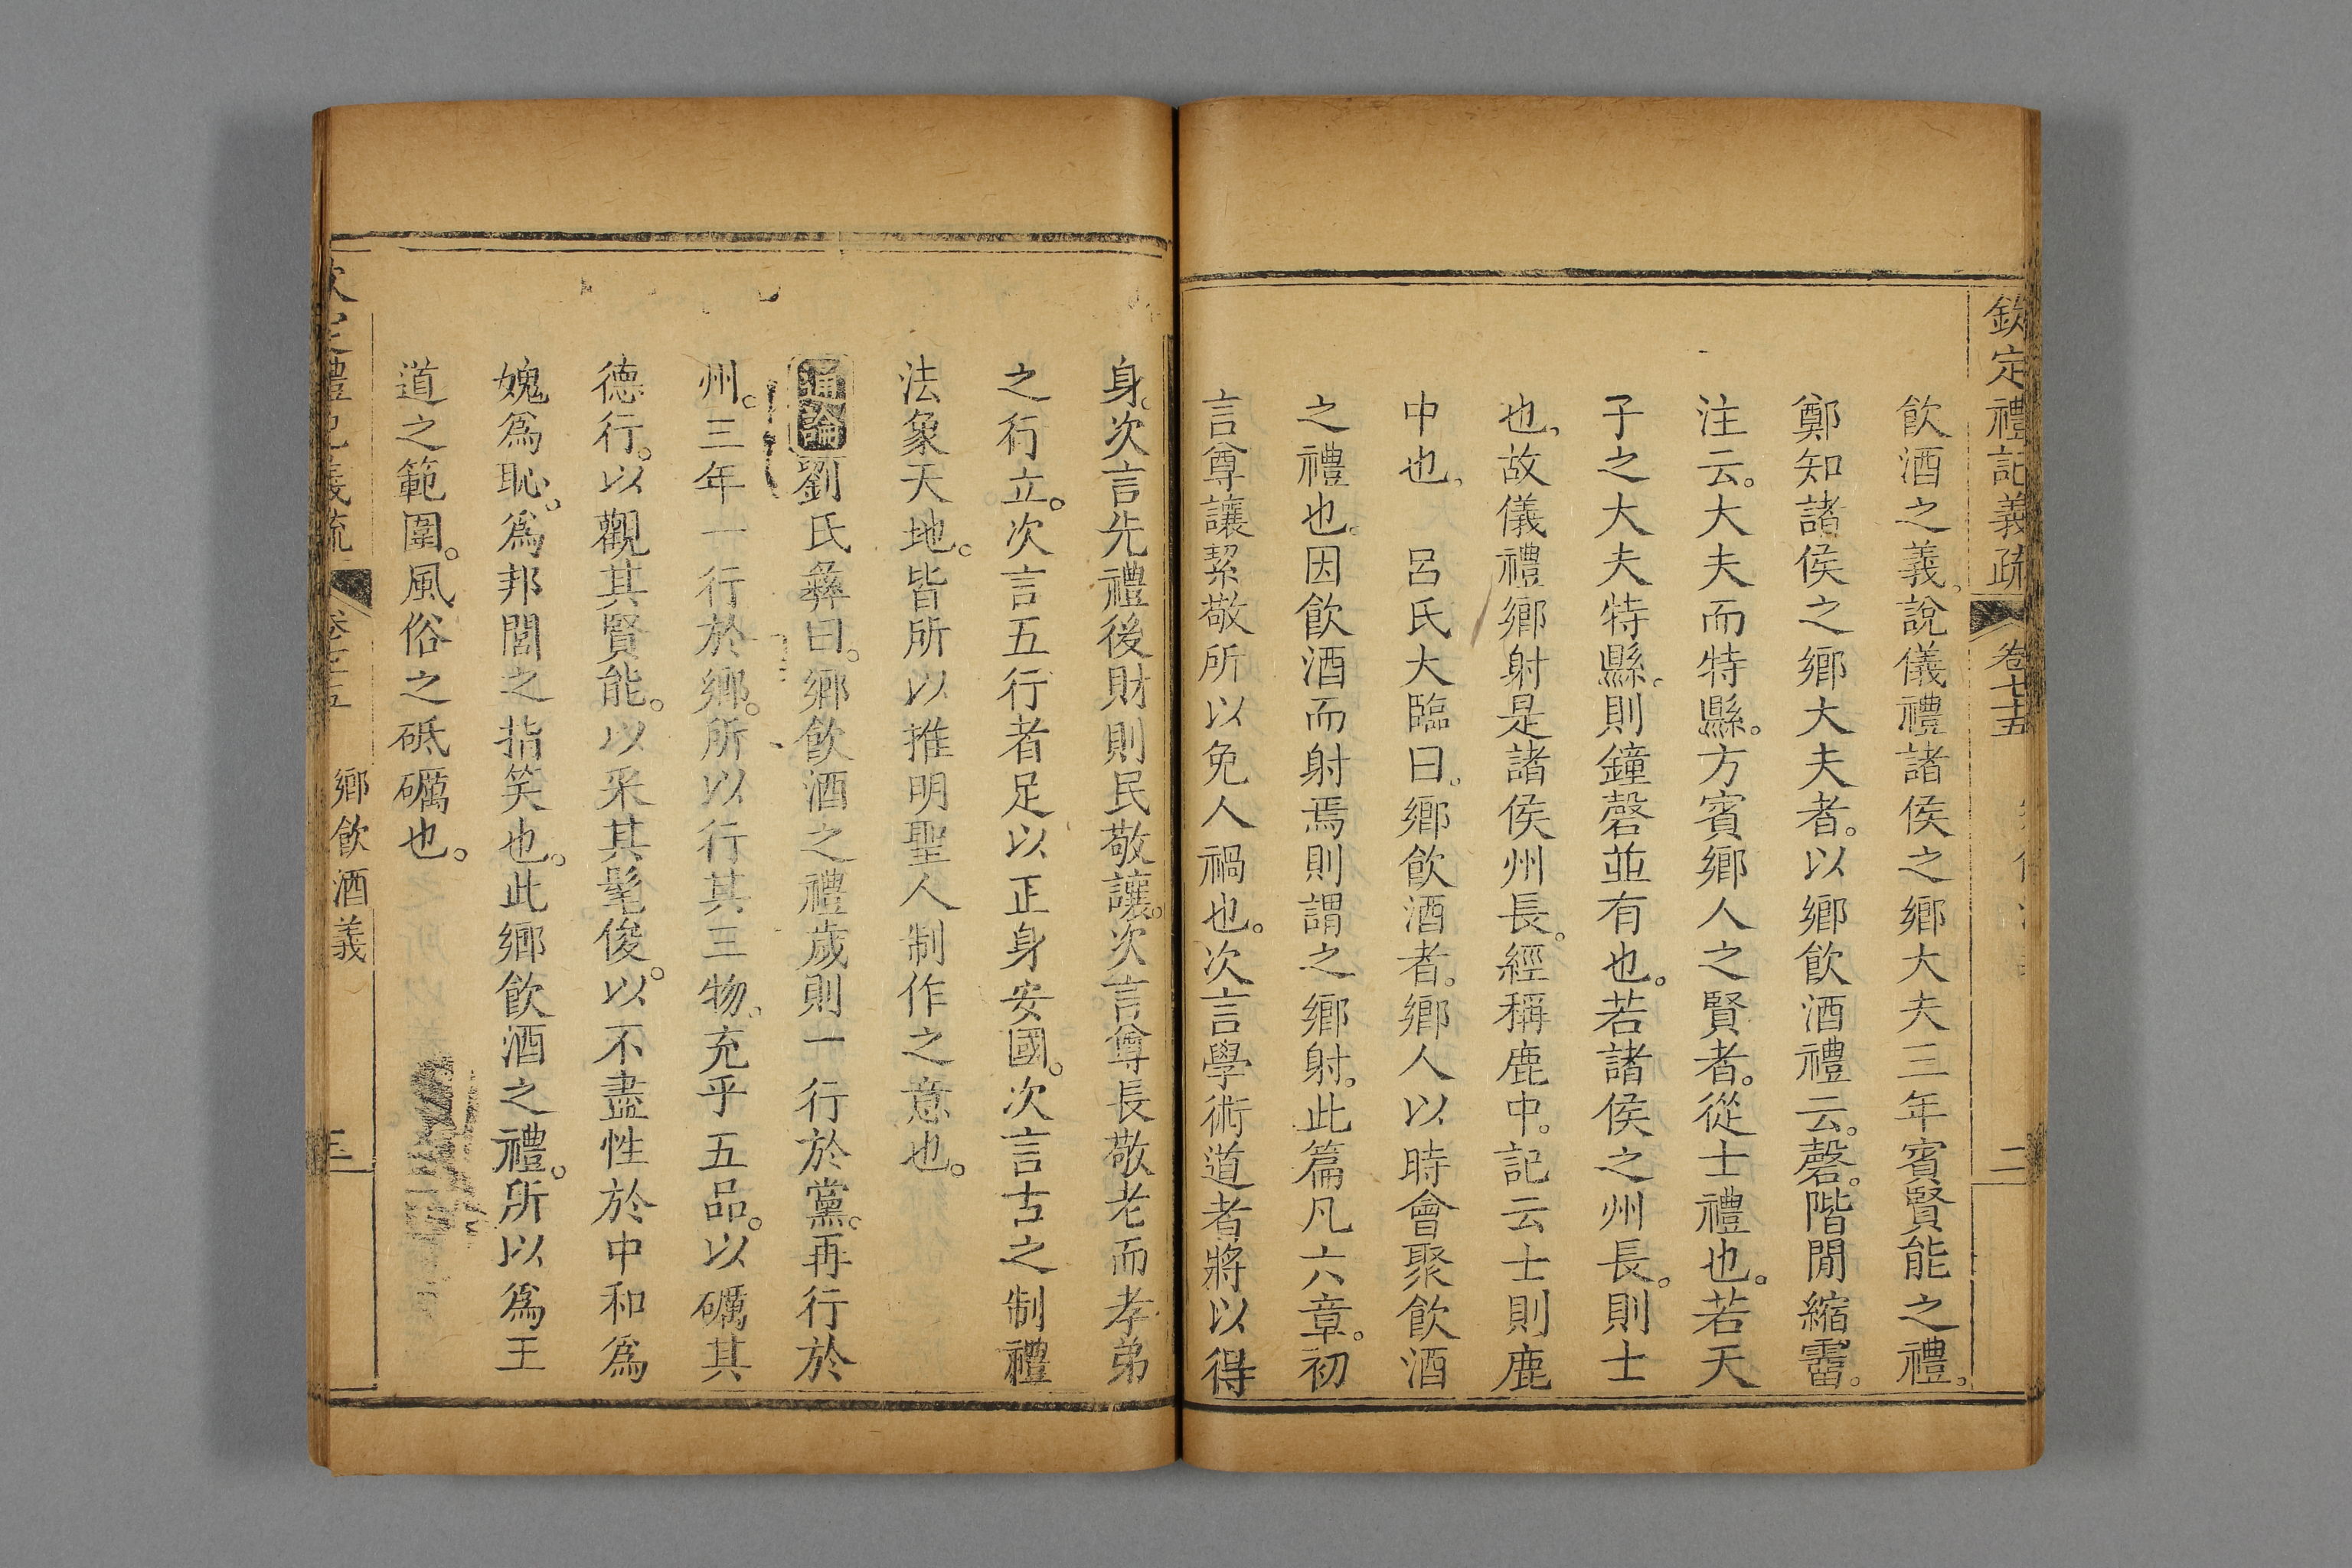 欽定禮記義疏 卷七十五 二
飲酒之義。說儀禮諸侯之鄉大夫三年賓賢能之禮。
鄭知諸侯之鄉大夫者。以鄉飲酒禮云。磬。階閒縮霤。
注云。大夫而特縣。方賓鄉人之賢者。從士禮也。若天
子之大夫特縣。則鐘磬並有也。若諸侯之州長。則士
也。故儀禮鄉射是諸侯州長。經稱鹿中。記云士則鹿
中也。 呂氏大臨曰。鄉飲酒者。鄉人以時會聚飲酒
之禮也。因飲酒而射焉則謂之鄉射。此篇凡六章。初
言尊讓絜敬所以免人禍也。次言學術道者將以得
身。次言先禮後財則民敬讓。次言尊長敬老而孝弟
之行立。次言五行者足以正身安國。次言古之制禮
法象天地。皆所以推明聖人制作之意也。
通論劉氏彝曰。鄉飲酒之禮歲則一行於黨。再行於
州。三年一行於鄉。所以行其三物。充乎五品。以礪其
德行。以觀其賢能。以采其髦俊。以不盡性於中和爲
媿爲恥。爲邦閭之指笑也。此鄉飲酒之禮。所以爲王
道之範圍。風俗之砥礪也。
欽定禮記義疏 卷七十五 鄉飲酒義 三